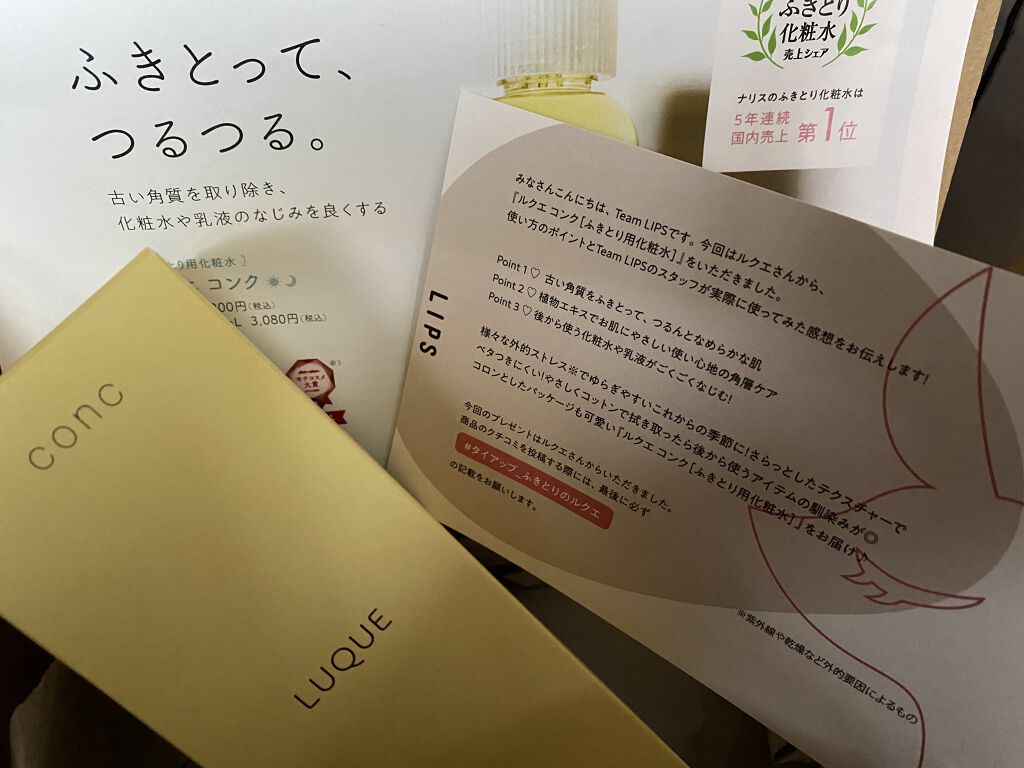 ふきとって、
つるつる。
古い角質を取り除き、
化粧水や乳液のなじみを良くする
り用化粧水 ]
コンク
00円(税込)
L 3,080円(税込)
※3
モテコスメ
大賞
ふきとり
化粧水
売上シェア
ナリスのふきとり化粧水は
5年連続
国内売上 第1位
conc
LUQUE
LIPS
みなさんこんにちは、Team LIPSです。今回はルクエさんから、
『ルクエ コンク[ふきとり用化粧水]』をいただきました。
使い方のポイントとTeam LIPSのスタッフが実際に使ってみた感想をお伝えします!
Point 1 ♡ 古い角質をふきとって、つるんとなめらかな肌
Point 2 ♡ 植物エキスでお肌にやさしい使い心地の角層ケア
Point 3 ♡ 後から使う化粧水や乳液がごくごくなじむ!
様々な外的ストレス※でゆらぎやすいこれからの季節に!さらっとしたテクスチャーで
ベタつきにくい!やさしくコットンで拭き取ったら後から使うアイテムの馴染みが◎
コロンとしたパッケージも可愛い『ルクエ コンク[ふきとり用化粧水]』をお届け♪
今回のプレゼントはルクエさんからいただきました。
商品のクチコミを投稿する際には、最後に必ず
#タイアップ_ふきとりのルクエ
の記載をお願いします。
※紫外線や乾燥など外的要因によるもの